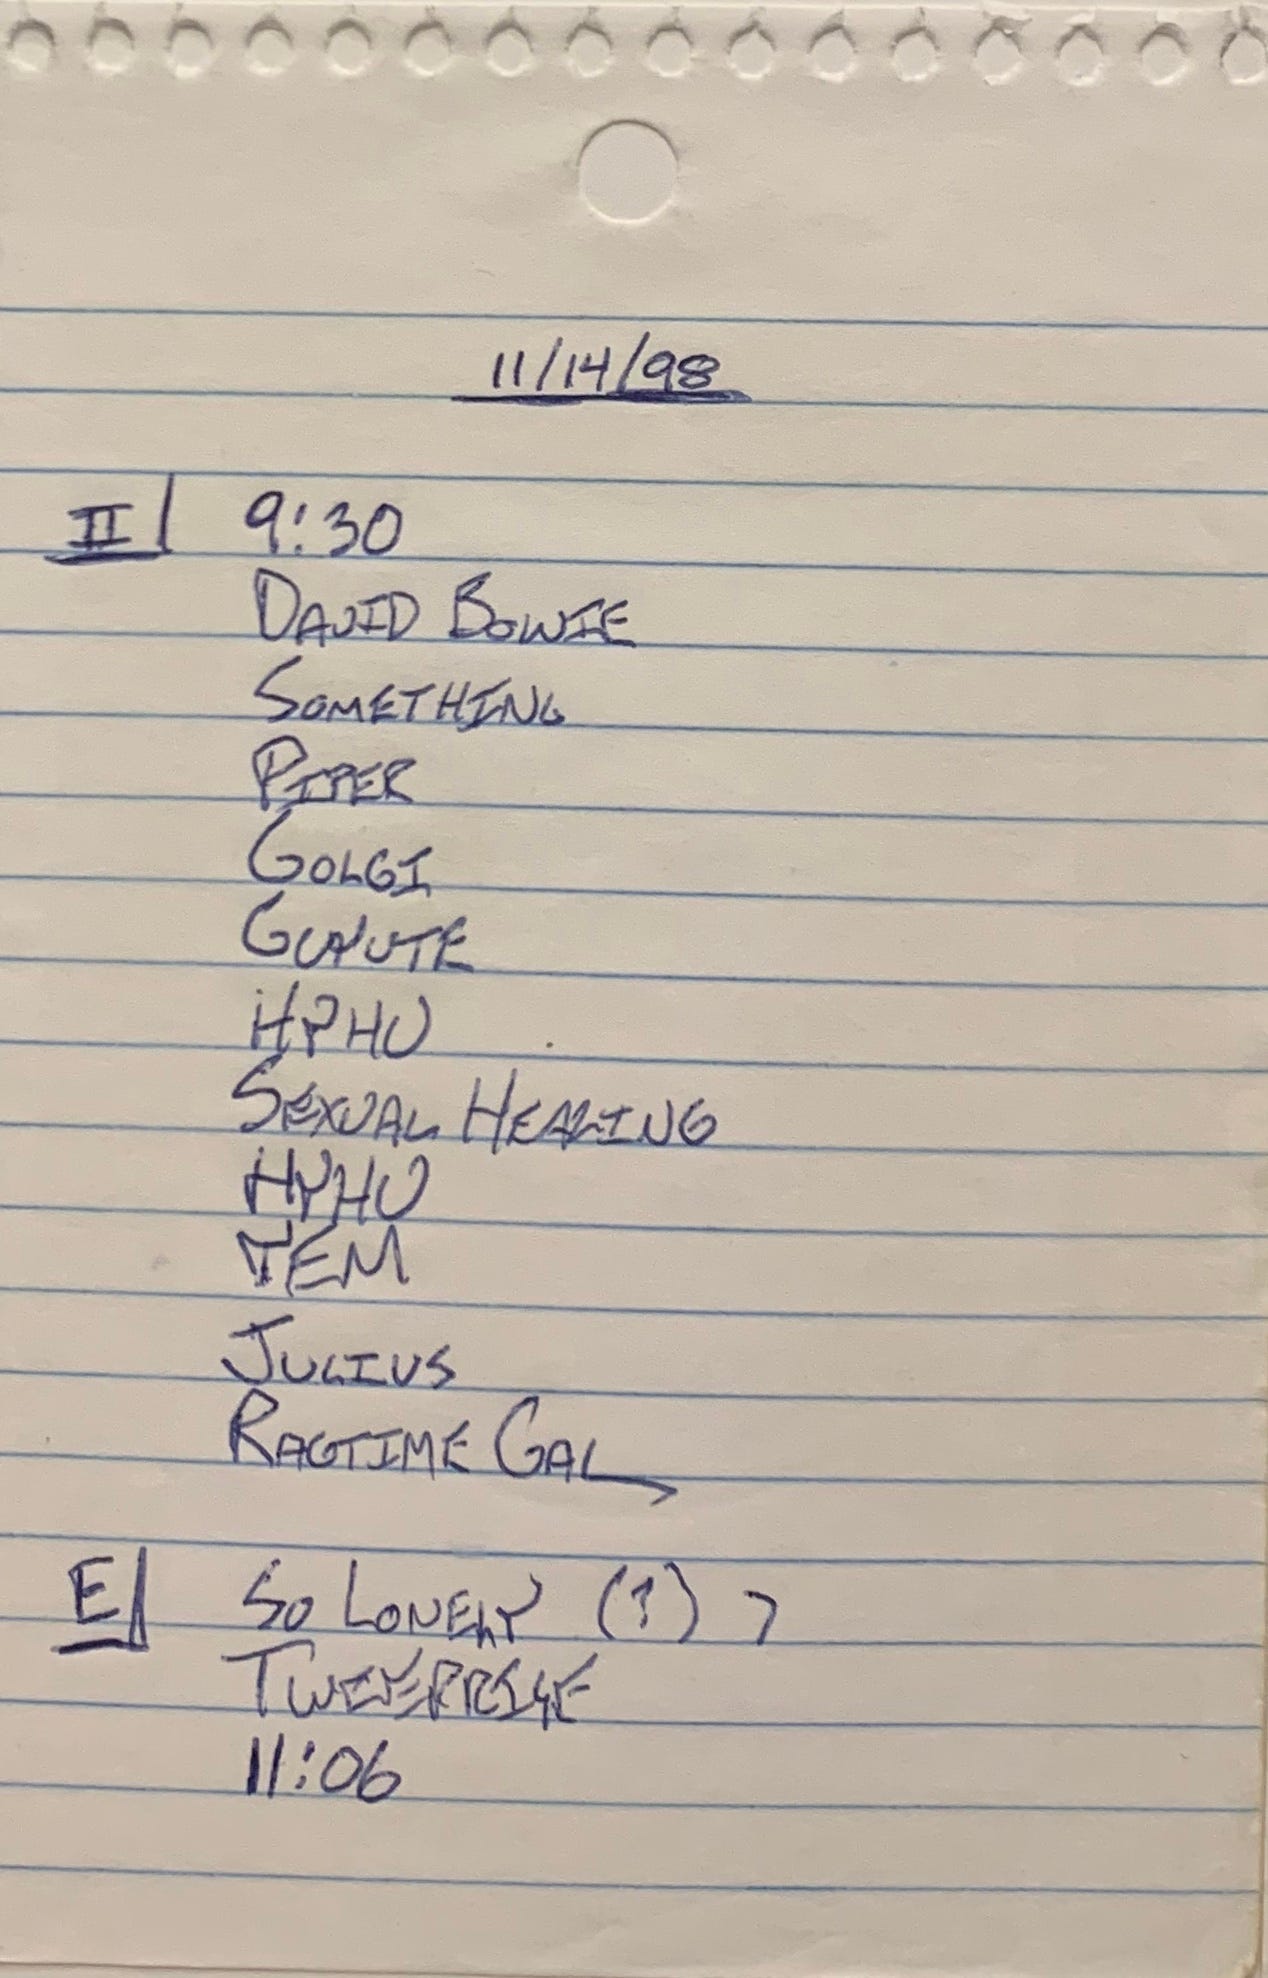 11/14/98
II 9:30
DAVID BOWIE
SOMETHING
PIPER
GOLGI
GUYUTE
HYHU
SEXUAL HEALING
HYHU
TEM
JULIUS
RAGTIME GAL
E SO LONELY (1) >
TWEEPRISE
11:06